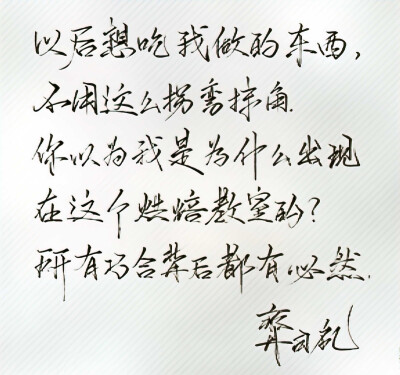 以后想吃我做的东西，
不用这么拐弯抹角.
你以为我是为什么出现
在这个烘焙教室的？
所有巧合背后都有必然.
齐司礼